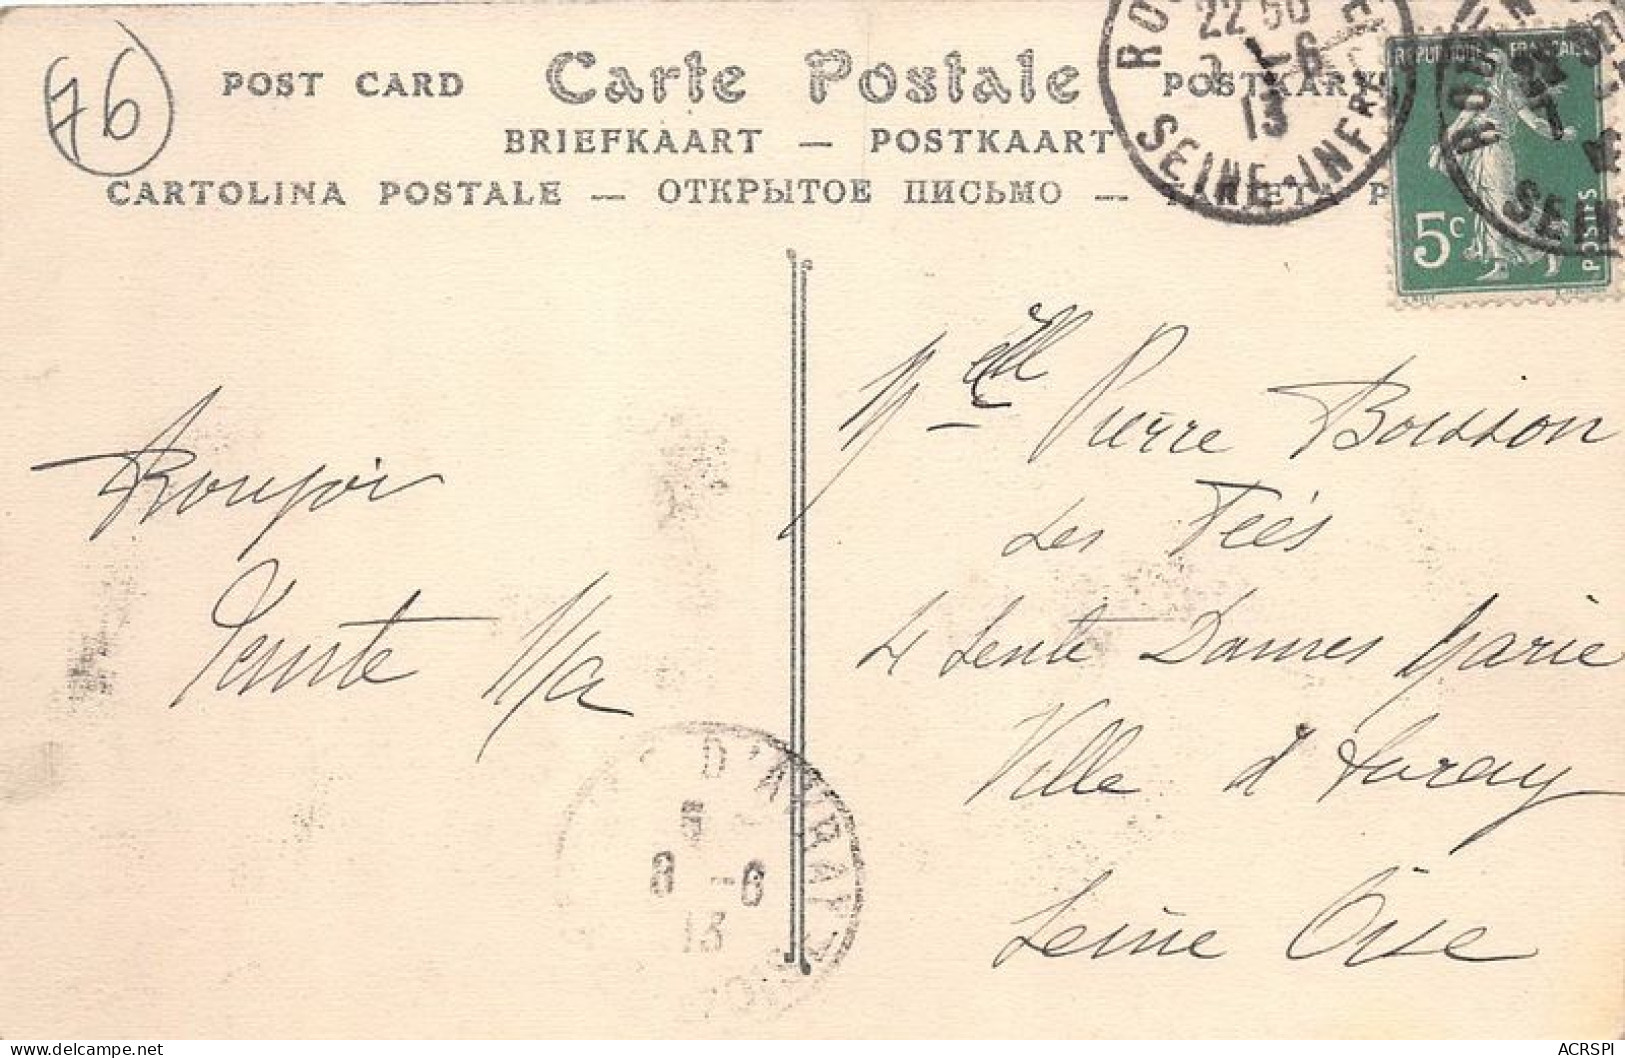 76
POST CARD Carte Postale POSTKART
BRIEFKAART — POSTKAART
CARTOLINA POSTALE — ОТКРЫТОЕ ПИСЬМО — TARJETA P
22 50
7 -6
13
SEINE-INFRE
REPUBLIQUE FRANÇAISE
5c
POSTES
ROUEN
SEINE
Melle Pierre Boisson
Les Fées
4 Sente Dames Marie
Ville d'Avray
Seine Oise
Bonjour
Tante
D'AVRAY
5
8 -6
13
ACRSPI